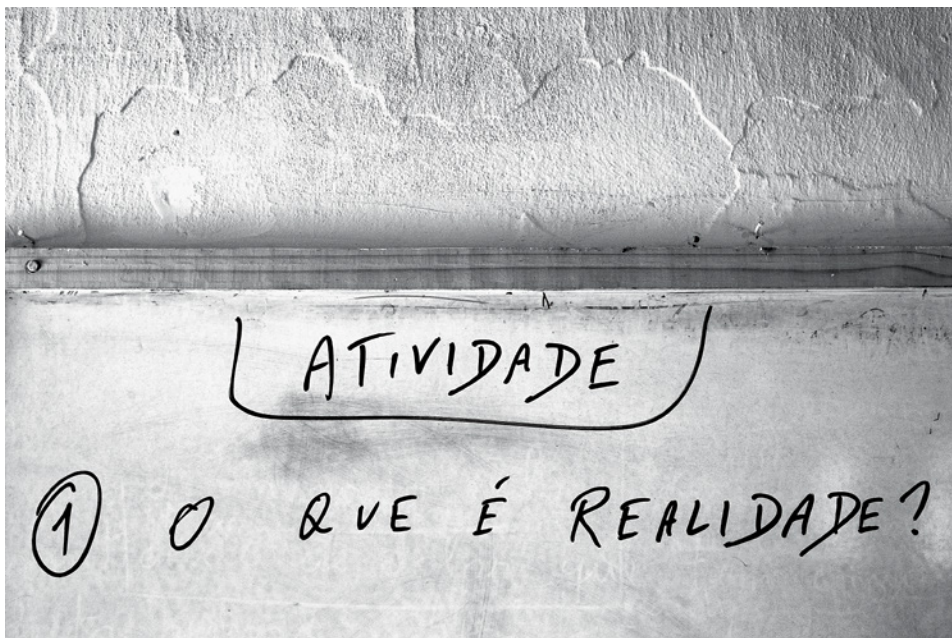 ATIVIDADE
1 O QUE É REALIDADE?